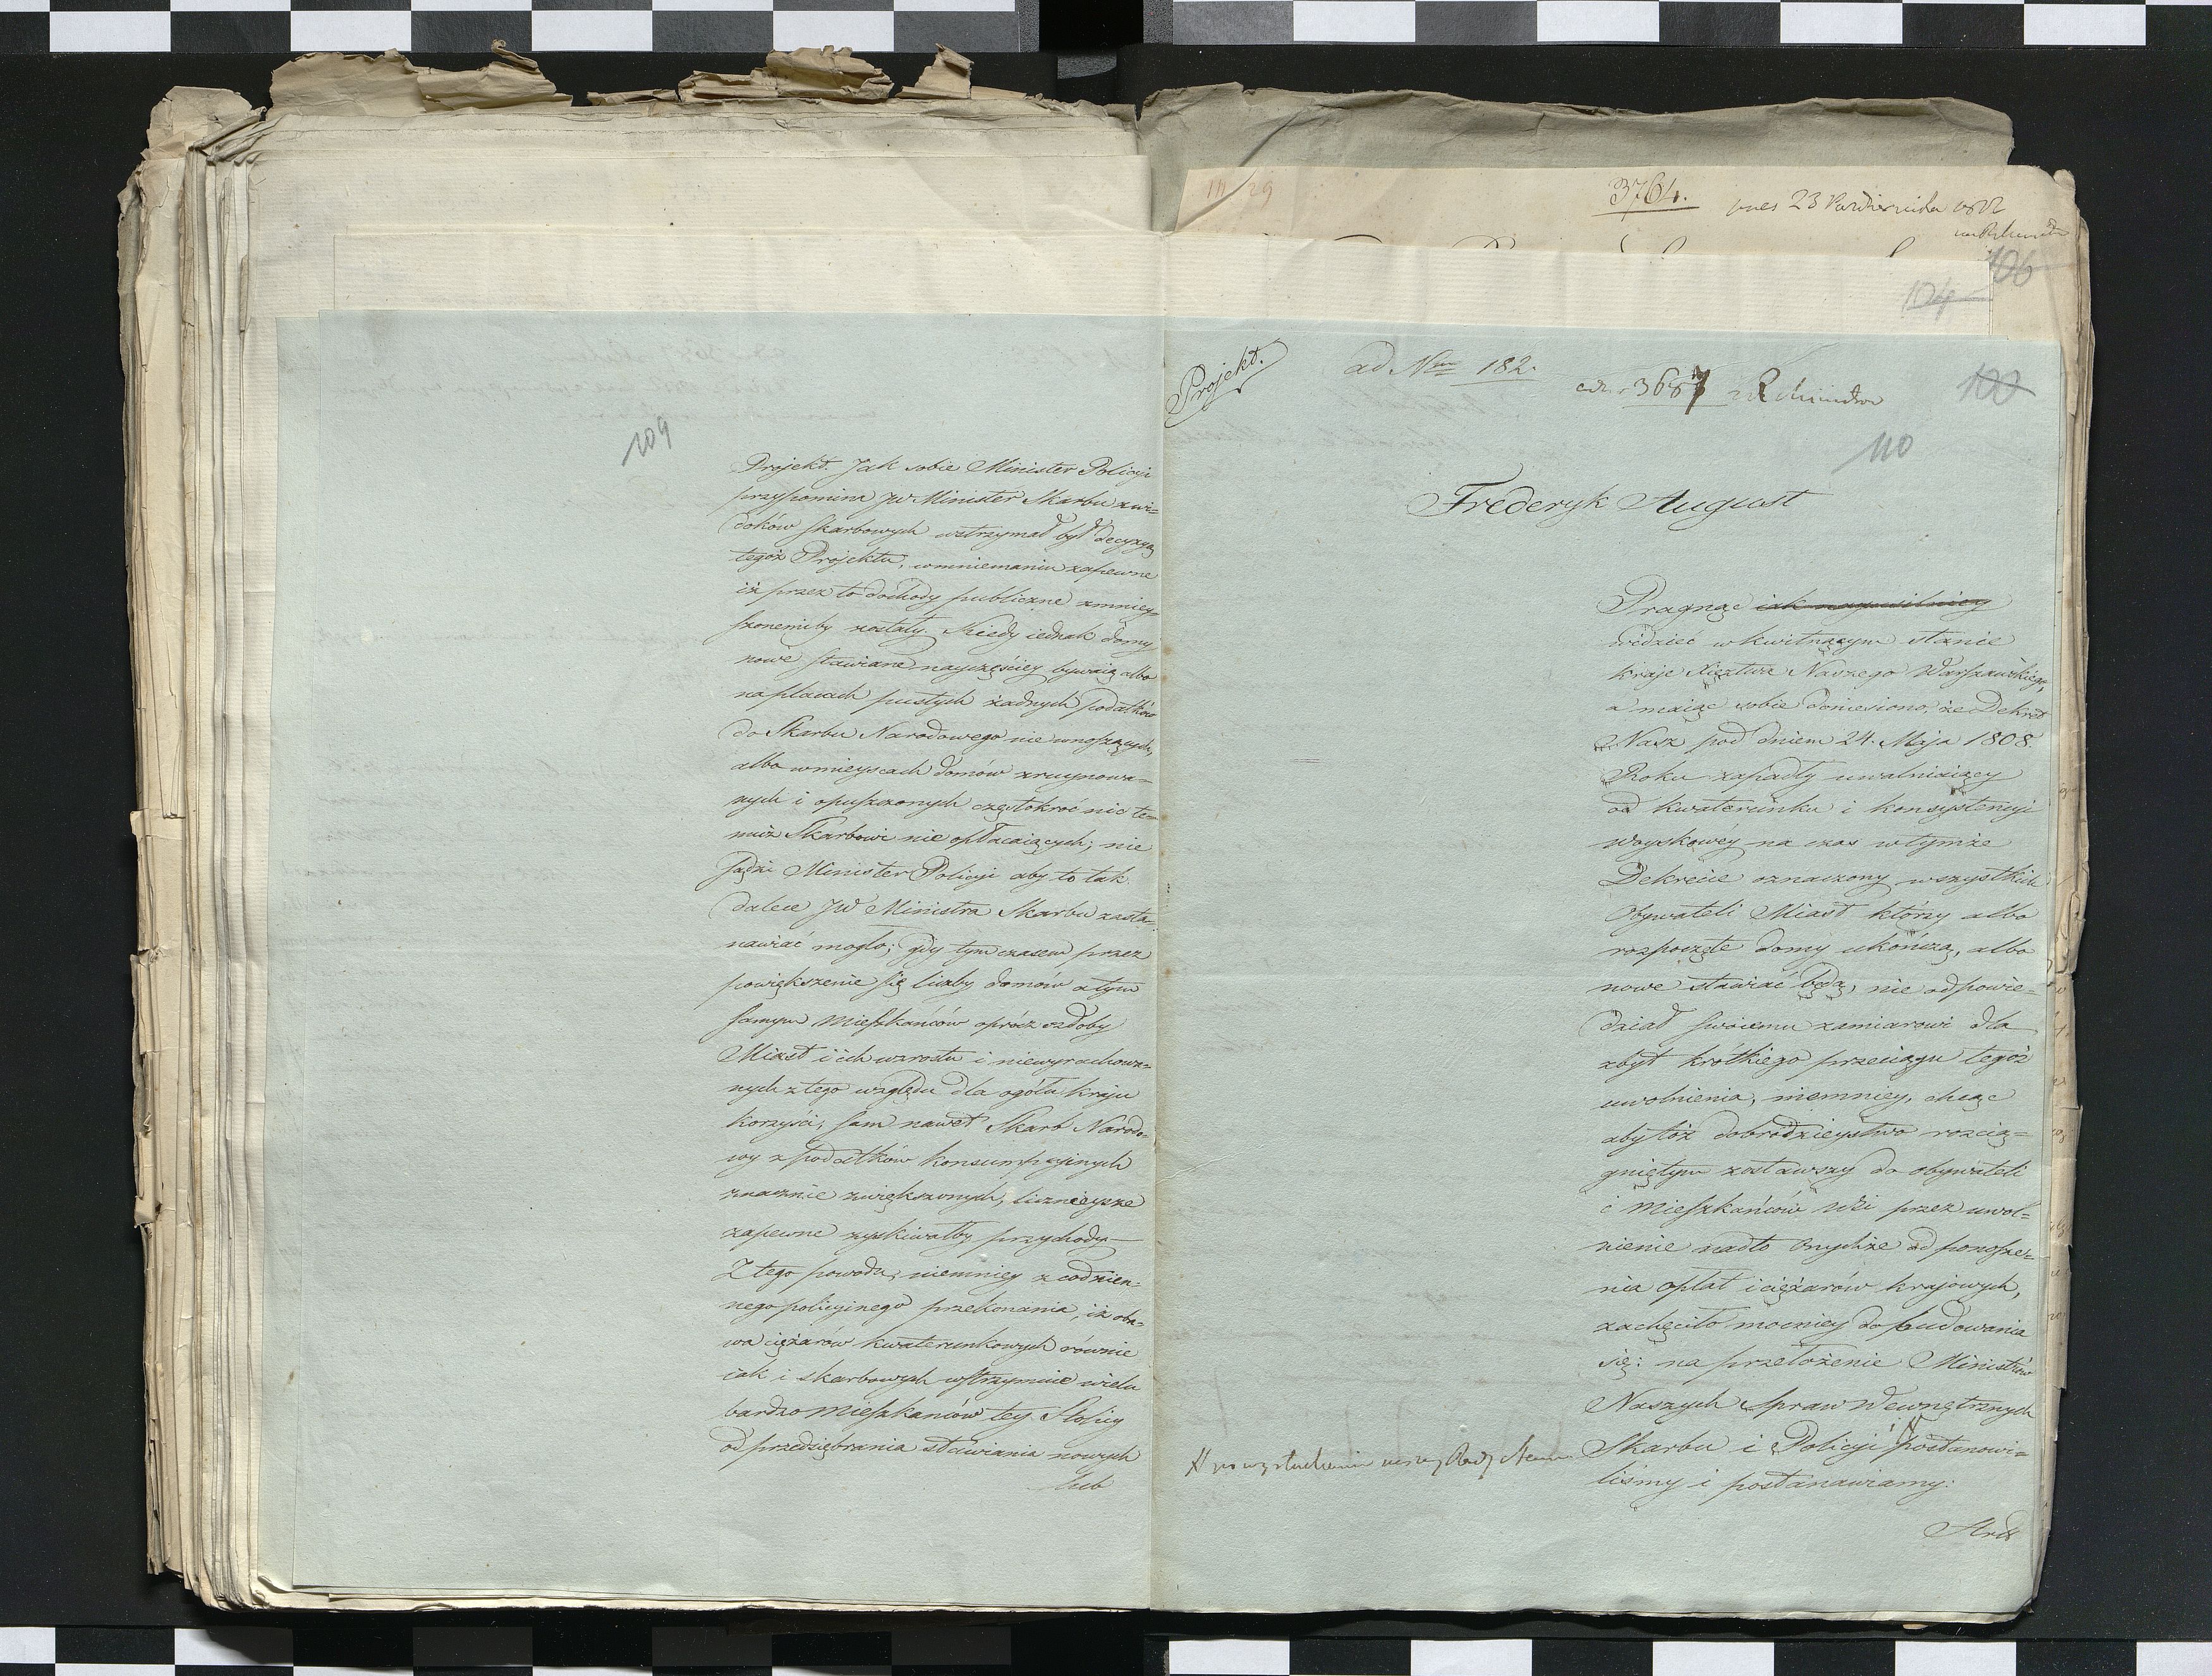 109
Projekt. Jak sobie Minister Policyi
przypomina JW Minister Skarbu zwi-
doków skarbowych wstrzymał był decyzyą
tegoż Projektu, wmniemaniu zapewne
iż przez to dochody publiczne zmniey-
szonemiby zostały. Kiedy iednak domy
nowe stawiane nayczęściey bywaią albo
na placach pustych żadnych podatków
do Skarbu Narodowego nie wnoszących,
albo wmieyscach domów zruynowa-
nych i opuszczonych częstokroć nic te-
muż Skarbowi nie opłacaiących; nie
sądzi Minister Policyi aby to tak
dalece JW Ministra Skarbu zasta-
nawiać mogło; gdy tym czasem przez
powiększenie się liczby domów a tym
samym Mieszkańców oprócz ozdoby
Miast i ich wzrostu i niewyrachowa-
nych z tego względu dla ogółu kraju
korzyści, sam nawet Skarb Narodo-
wy z podatków konsumpcyinych
znacznie zwiększonych, licznieysze
zapewne zyskiwałby przychody
Z tego powodu, niemniey z codzien-
nego policyinego przekonania, iż oba-
wa ciężarów kwaterunkowych równie
iak i skarbowych wstrzymuie wielu
bardzo Mieszkańców tey Stolicy
od przedsiębrania stawiania nowych
lub
3764.
23 Października
106
104
Projekt.
ad Nrum 182.
ad 3687
100
110
Fréderyk August
Pragnąc iak nayusilniey
widzieć w kwitnącym stanie
kraje Xięztwa Naszego Warszawskiego,
a maiąc sobie doniesiono, że Dekret
Nasz pod dniem 24. Maja 1808.
Roku zapadły uwalniaiący
od kwaterunku i konsystencyi
woyskowéy na czas w tymże
Dekrecie oznaczony wszystkich
Obywateli Miast którzy albo
rozpoczęte domy ukończą, albo
nowe stawiać będą, nie odpowie-
dział swoiemu zamiarowi dla
zbyt krótkiego przeciągu tegoż
uwolnienia, niemniey, chcąc
aby toż dobrodzieystwo rozcią-
gniętym zostawszy do obywateli
i Mieszkańców Wsi przez uwol-
nienie nadto Onychże od ponosze-
nia opłat i ciężarów krajowych,
zachęciło mocniey do budowania
się: na przełożenie Ministrów
Naszych Spraw Wewnętrznych
Skarbu i Policyi postanowi-
po wysłuchaniu naszey Rady Stanu
liśmy i postanawiamy:
Art